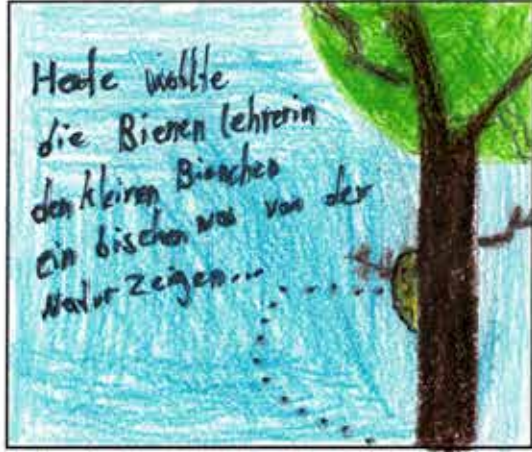 Heute wollte
die Bienenlehrerin
den kleinen Bienchen
ein bischen was von der
Natur zeigen...